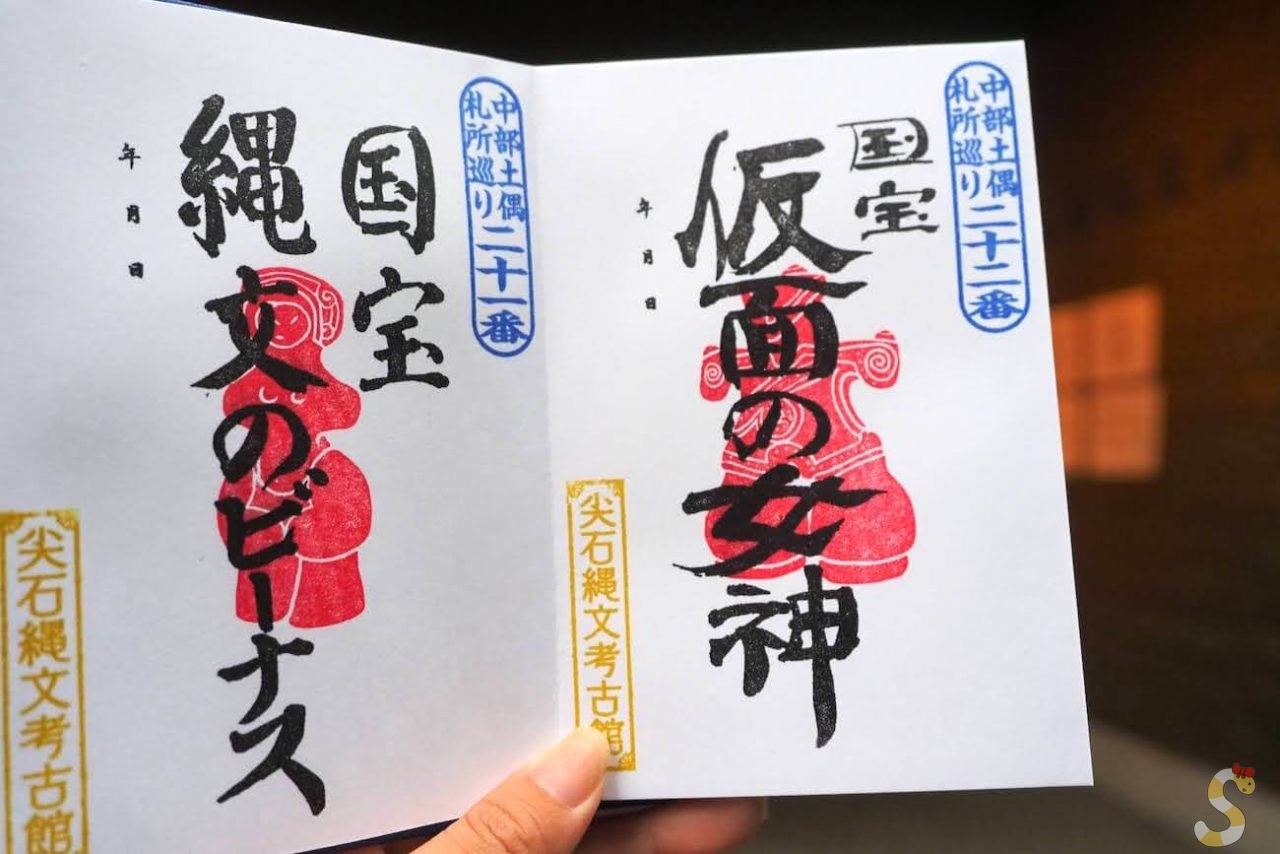 中部土偶
札所巡り二十二番
国宝
仮面の女神
年 月 日
尖石縄文考古館
中部土偶
札所巡り二十一番
国宝
縄文のビーナス
年 月 日
尖石縄文考古館
S